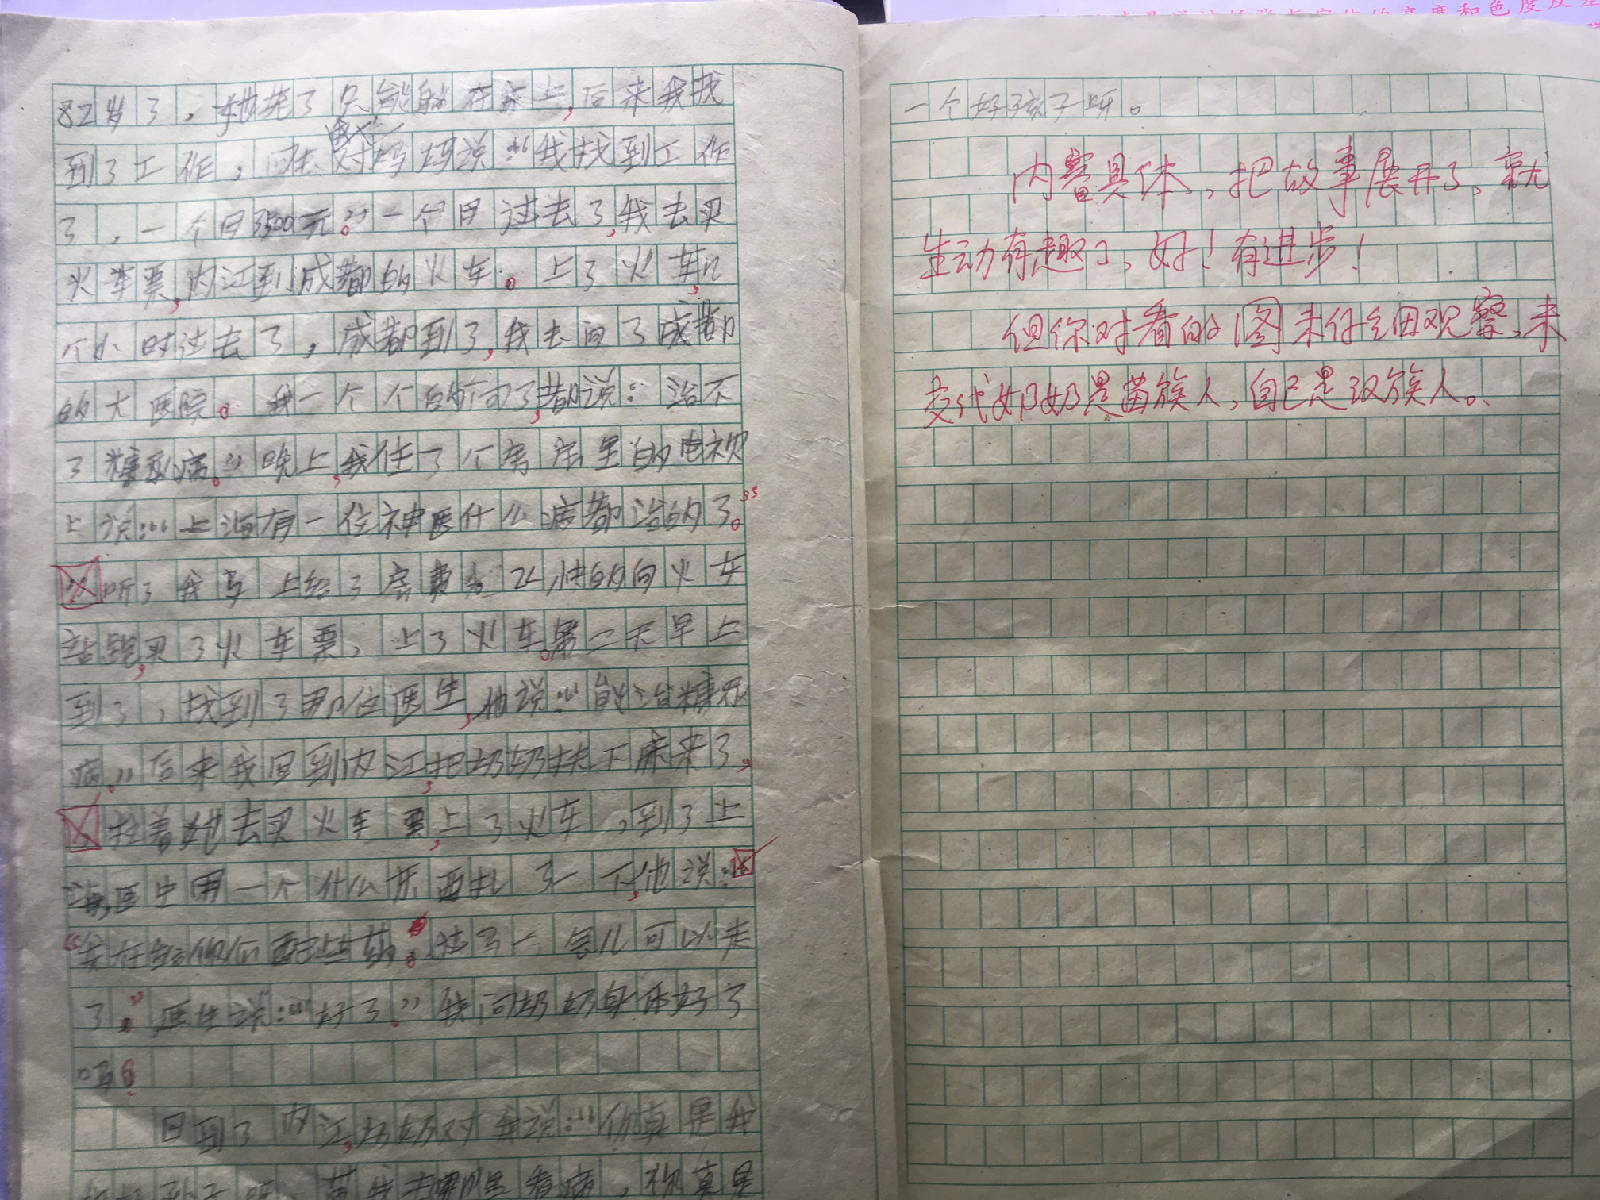 82岁了，她老了只能躺在床上，后来我找
到了工作，回去对妈妈说：“我找到工作
了，一个月3500元。”一个月过去了，我去买
火车票，内江到成都的火车。上了火车，几
个小时过去了，成都到了，我去问了成都
的大医院。我一个个的问了，都说：治不
了糖尿病。”晚上，我住了个房店里的电视
上说：“上海有一位神医什么病都治的了。”
听了我马上给了房费，飞快的向火车
站跑，买了火车票，上了火车。第二天早上
到了，找到了那位医生，他说：“能治糖尿
病。”后来我回到内江，把奶奶扶下床来了，
拉着她去买火车票，上了火车，到了上
海，医生用一个什么东西扎了一下，他说：
“实在给你们配上药。过了一会儿可以走
了。”医生说：“好了。”我问奶奶身体好了
吗？
回到了内江，奶奶对我说：“你真是我
看病，你真是
一个好孩子呀。
内容具体，把故事展开了，就
生动有趣了，好！有进步！
但你对看的图未仔细观察，未
交代奶奶是苗族人，自己是汉族人。